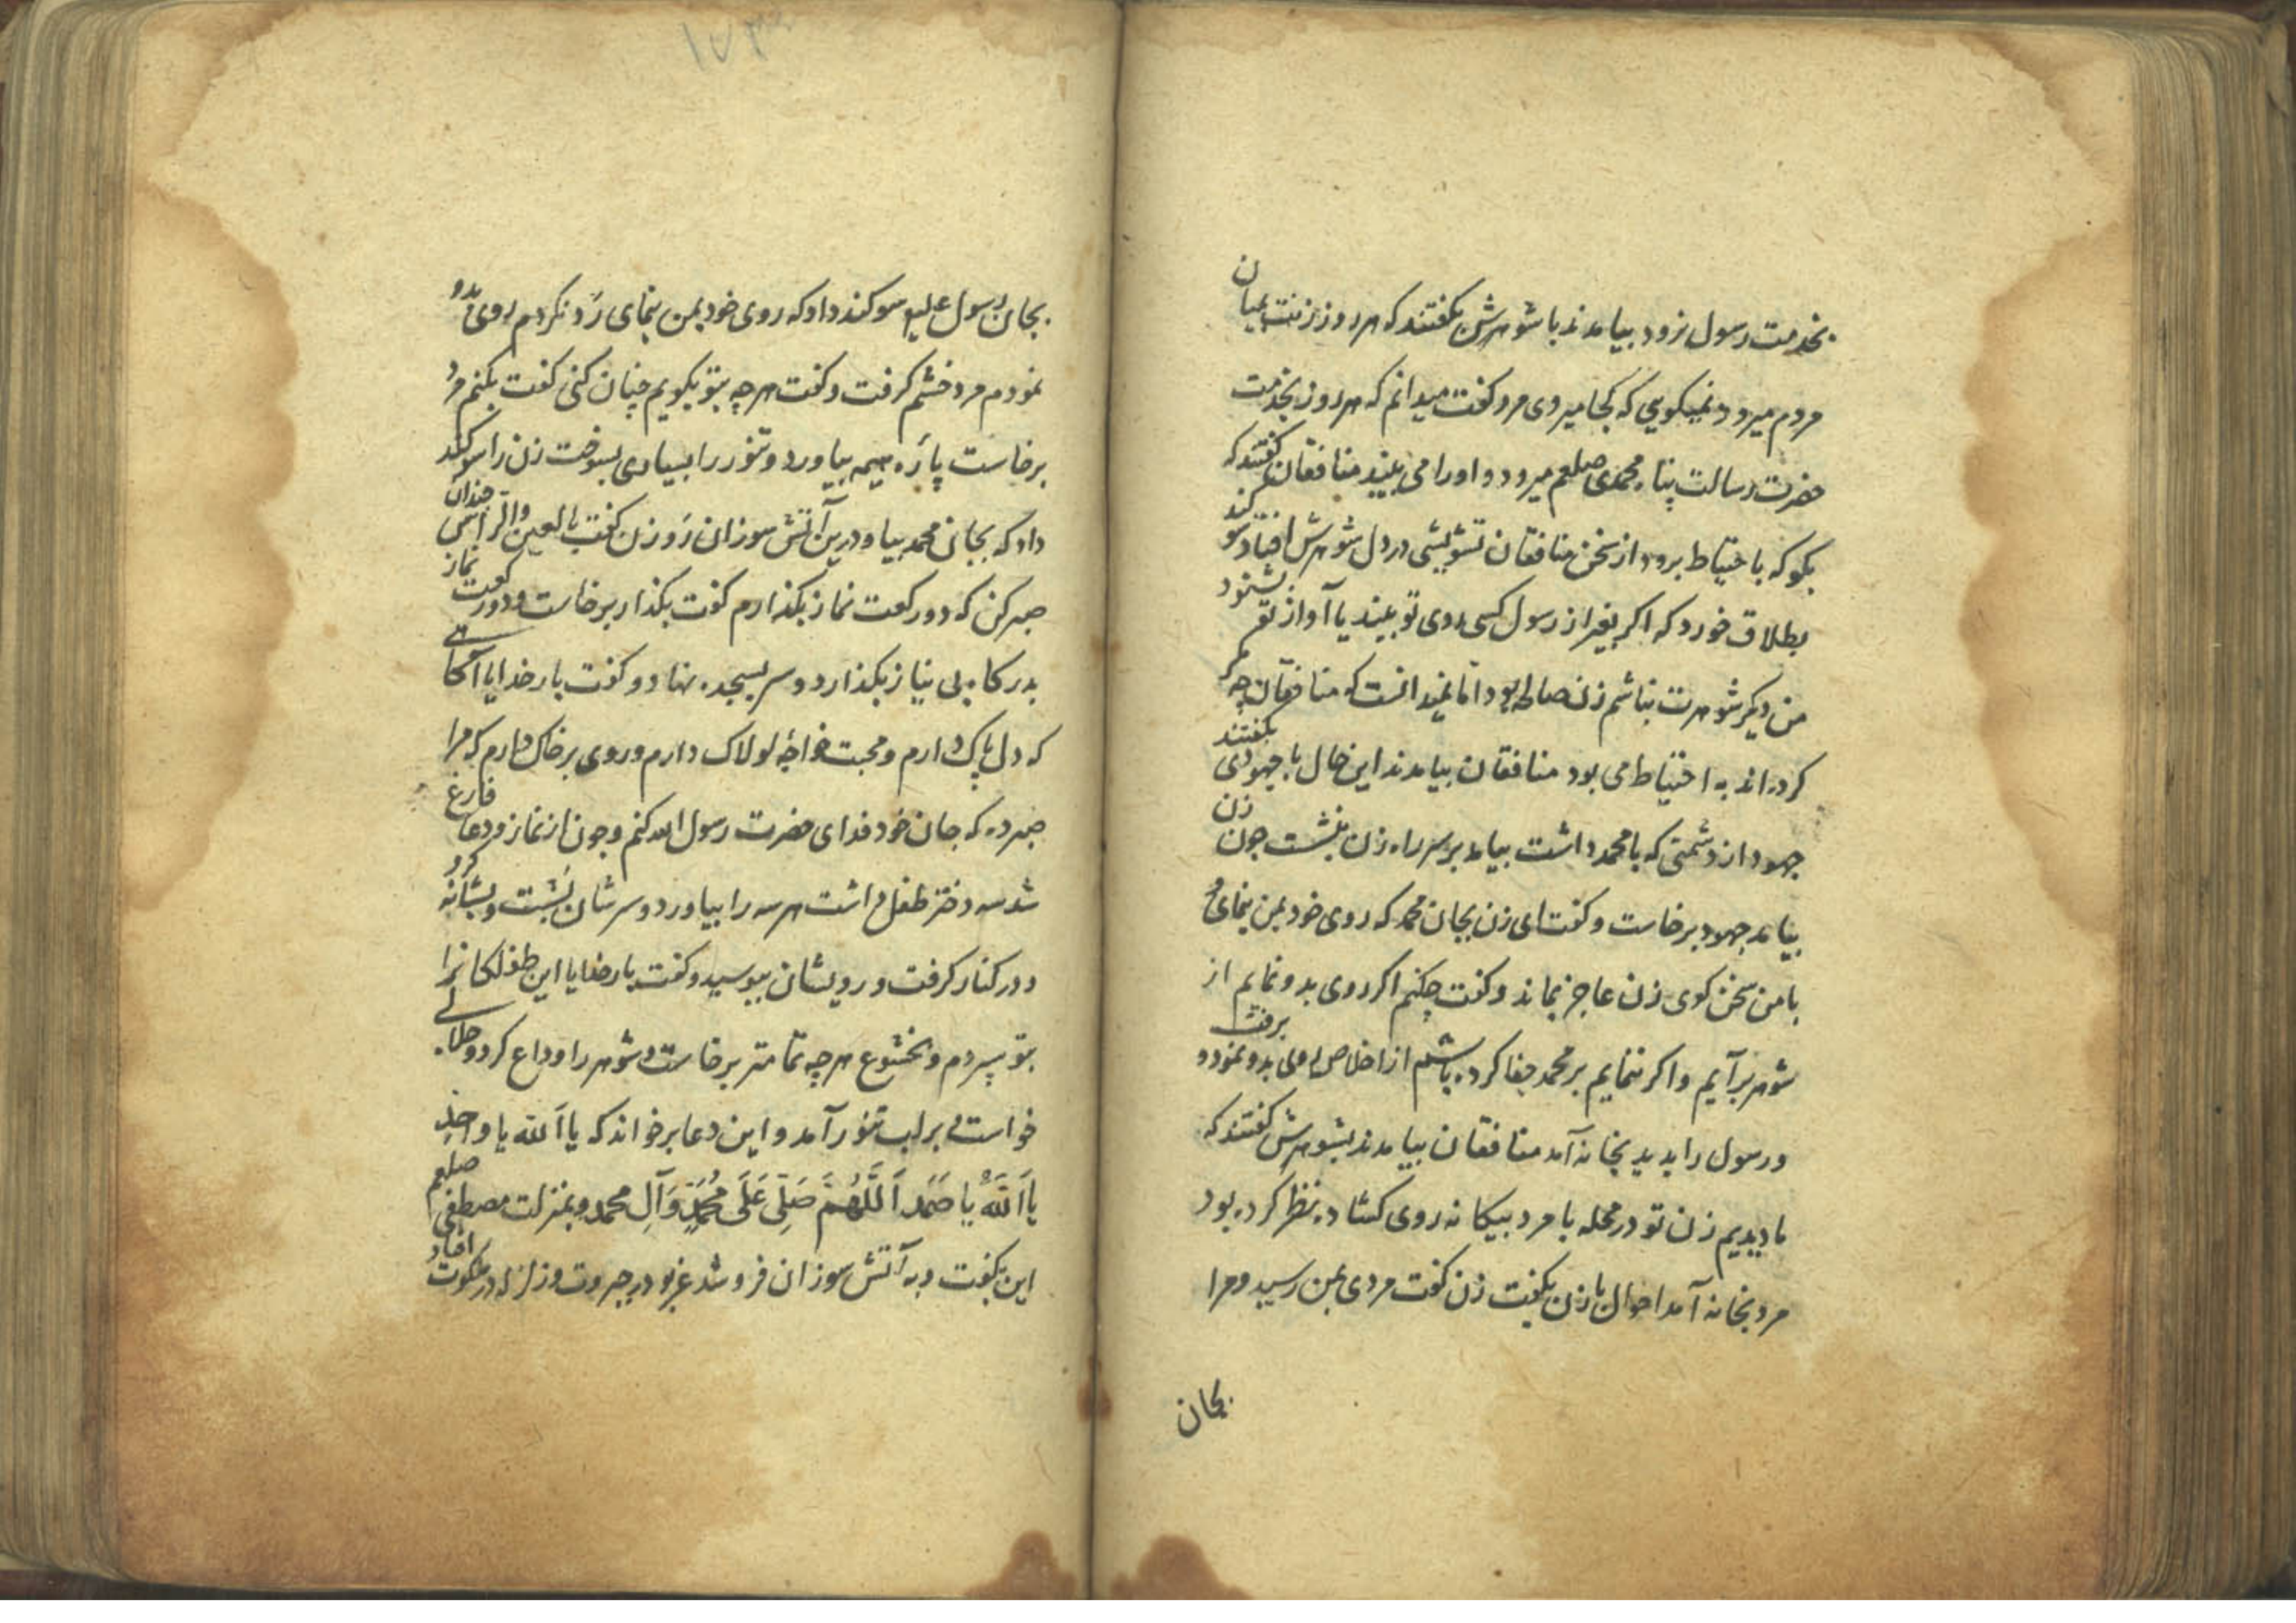 بخدمت رسول نرود بیامدند با شوهرش بکفتند که هر روز زنت بمیان
مردم میرود نمیکویی که کجا میروی مرد کفت میدانم که هر روز بخدمت
حضرت رسالت پناه محمدی صلعم میرود و او را می بیند منافقان کفتند که
بکو که باحتیاط برود از سخن منافقان تشویشی در دل شوهرش افتاد سوکند
بطلاق خورد که اکر بغیر از رسول کسی روی تو بیند یا آواز تو بشنود
من دیکر شوهرت نباشم زن صالحه بود اما نمیدانست که منافقان چه مکر
کرده اند به احتیاط می بود منافقان بیامدند این حال با جهودی بکفتند
جهود از دشمنی که با محمد داشت بیامد بر سر راه زن بنشست چون زن
بیامد جهود برخاست و کفت ای زن بجان محمد که روی خود بمن بنمای و
با من سخن کوی زن عاجز بماند و کفت چکنم اکر روی بدو نمایم از
شوهر برآیم و اکر ننمایم بر محمد جفا کرده باشم از اخلاص روی بدو نمود و برفت
و رسول را بدید بخانه آمد منافقان بیامدند بشوهرش کفتند که
ما دیدیم زن تو در محله با مرد بیکانه روی کشاده نظر کرده بود
مرد بخانه آمد احوال با زن بکفت زن کفت مردی بمن رسید و مرا
بجان
بجان رسول علیه سوکند داد که روی خود بمن بنمای رد نکردم روی بدو
نمودم مرد خشم کرفت و کفت هر چه بتو بکویم چنان کنی کفت بکنم مرد
برخاست پاره هیمه بیاورد و تنور را بسیاری بسوخت زن را سوکند
داد که بجان محمد بیا و درین آتش سوزان رو زن کفت بالعین والراس چندان
صبر کن که دو رکعت نماز بکذارم کفت بکذار برخاست و دو رکعت نماز
بدرکاه بی نیاز بکذارد و سر بسجده نهاد و کفت بار خدایا آکاهی
که دل پاک دارم و محبت خواجه لولاک دارم و روی بر خاک دارم که مرا
صبر ده که جان خود فدای حضرت رسول الله کنم و چون از نماز و دعا فارغ
شد سه دختر طفل داشت هر سه را بیاورد و سرشان بشست و بشانه کرد
و در کنار کرفت و رویشان ببوسید و کفت بار خدایا این طفلکانرا
بتو سپردم و بخشوع هر چه تمامتر برخاست و شوهر را وداع کرد و حلالی
خواست و بر لب تنور آمد و این دعا بر خواند که یا الله یا واحد
یا الله یا صمد اللهم صلی علی محمد و آل محمد و بمنزلت مصطفی صلعم
این بکفت و به آتش سوزان فرو شد غریو در جبروت و زلزله در ملکوت افتاد